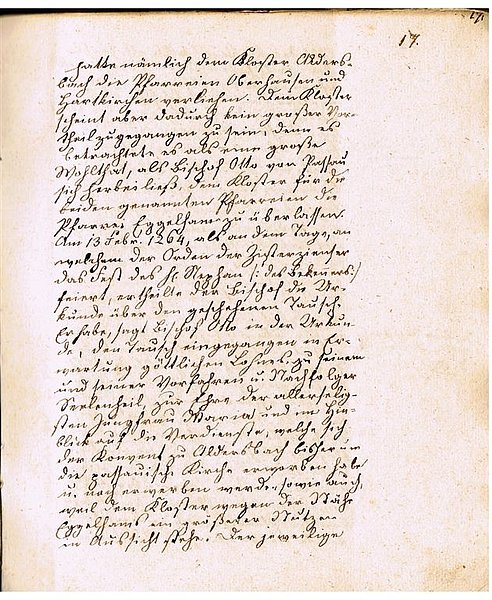 17.
hatte nämlich dem Kloster Alders-
bach die Pfarreien Oberhausen und
Hartkirchen verliehen. Dem Kloster
scheint aber dadurch kein großer Vor-
theil zugegangen zu sein, denn es
betrachtete es als eine große
Wohlthat, als Bischof Otto von Passau
sich herbeiließ, dem Kloster für die
beiden genannten Pfarreien die
Pfarrei Eggelham zu überlassen.
Am 13 Febr. 1264, als an dem Tage, an
welchem der Orden der Zisterzienser
das Fest des hl. Stephan (: des Bekenners :)
feiert, ertheilte der Bischof die Ur-
kunde über den geschehenen Tausch.
Er habe, sagt Bischof Otto in der Urkun-
de, den Tausch eingegangen in Er-
wartung göttlichen Lohnes zu seinem
und seiner Vorfahren u. Nachfolger
Seelenheil, zur Ehre der allerselig-
sten Jungfrau Maria und im Hin-
blick auf die Verdienste, welche sich
der Konvent zu Aldersbach bisher um
die passauische Kirche erworben habe
u. noch erwerben werde, sowie auch,
weil dem Kloster wegen der Nähe
Eggelhams ein größerer Nutzen
in Aussicht stehe. Der jeweilige